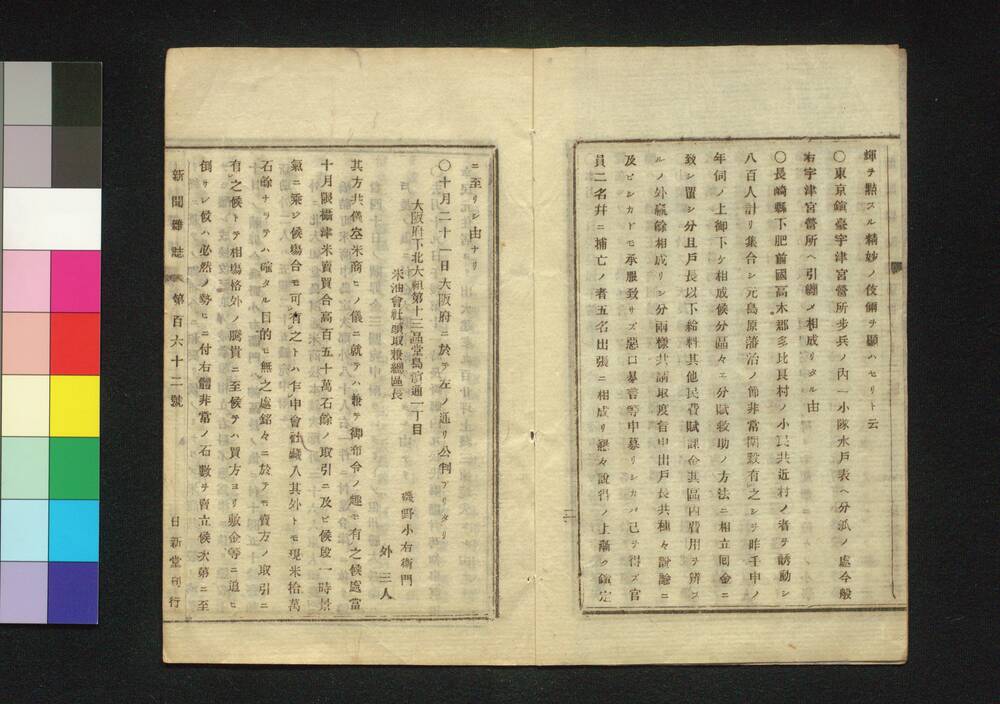 輝ヲ點スル精妙ノ伎倆ヲ顯ハセリト云
〇東京鎭臺宇津宮營所歩兵ノ內一小隊水戶表ヘ分派ノ處今般
右宇津宮營所ヘ引纏メ相成リタル由
〇長崎縣下肥前國高木郡多比良村ノ小民共近村ノ者ヲ誘動シ
八百人計リ集合シ元島原藩治ノ節非常囲穀有之シヲ昨壬申ノ
年伺ノ上御下ケ相成候分區々エ分賦救助ノ方法ニ相立囘金ニ
致シ置シ分且戶長以下給料其他民費賦課金其區內費用ヲ辨ス
ルノ外贏餘相成リシ分兩樣共請取度旨申出戶長共種々說諭ニ
及ヒシカドモ承服致サズ惡口暴言等申募リシカバ已ヲ得ズ官
員二名幷ニ捕亡ノ者五名出張ニ相成リ懇々說得ノ上漸ク鎭定
ニ至リシ由ナリ
〇十月二十一日大阪府ニ於テ左ノ通リ公判アリタリ
大阪府下北大組第十三區堂島濵通一丁目
米油會社頭取兼總區長
磯野小右衞門
外三人
其方共儀空米商ヒノ儀ニ就テハ兼テ御布令ノ趣モ有之候處當
十月限攝津米賣買合高百五十萬石餘ノ取引ニ及ヒ候段一時景
氣ニ乘シ候場合モ可有之トハ乍申會社藏入其外トモ現米拾萬
石餘ナラテハ確タル目的モ無之處銘々ニ於テモ賣方ノ取引ニ
有之候トテ相場格外ノ騰貴ニ至候テハ買方ヨリ敷金等ニ迫ヒ
倒サレ候ハ必然ノ勢ヒニ付右體非常ノ石數ヲ賣立候次第ニ至
新聞雜誌 第百六十二號 日新堂刊行